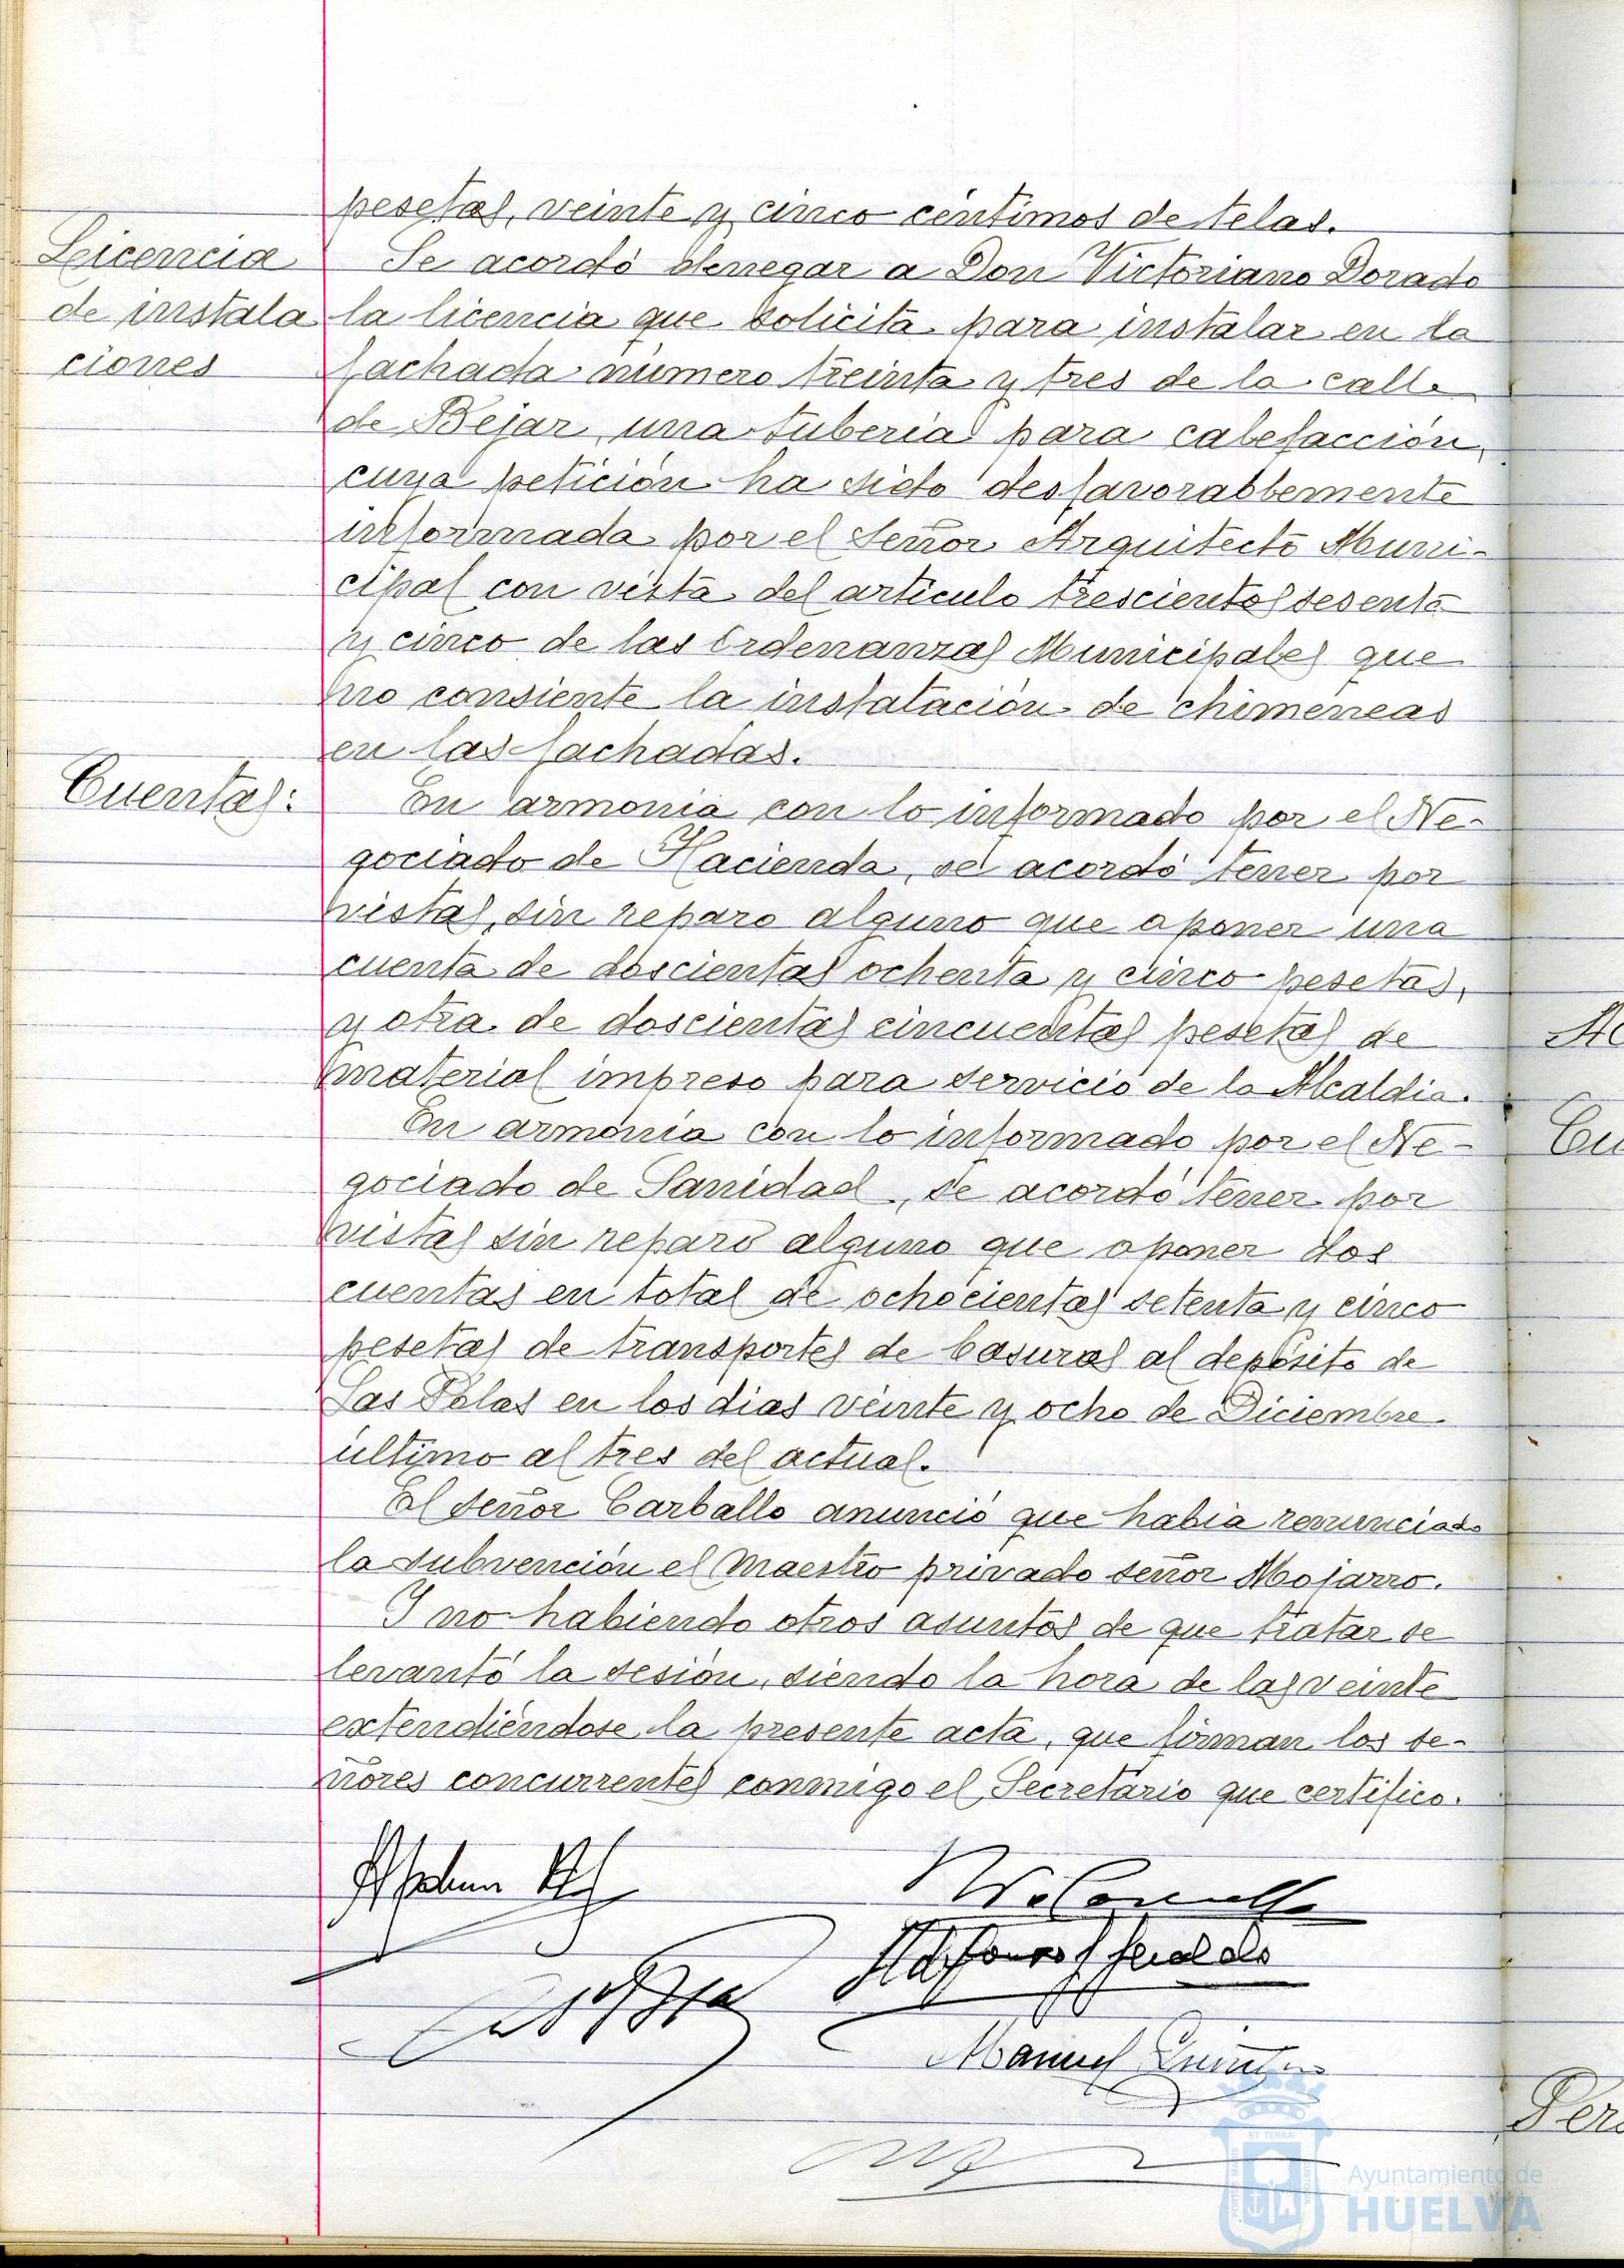 pesetas, veinte y cinco céntimos de telas.
Licencia
de instala
ciones
Se acordó denegar a Don Victoriano Dorado
la licencia que solicita para instalar en la
fachada número treinta y tres de la calle
de Bejar, una tubería para calefacción,
cuya petición ha sido desfavorablemente
informada por el Señor Arquitecto Muni-
cipal con vista del artículo trescientos sesenta
y cinco de las Ordenanzas Municipales que
no consiente la instalación de chimeneas
en las fachadas.
Cuentas:
En armonía con lo informado por el Ne-
gociado de Hacienda, se acordó tener por
vistas, sin reparo alguno que oponer una
cuenta de doscientas ochenta y cinco pesetas,
y otra de doscientas cincuentas pesetas de
material impreso para servicio de la Alcaldía.
En armonía con lo informado por el Ne-
gociado de Sanidad, se acordó tener por
vistas sin reparo alguno que oponer dos
cuentas en total de ochocientas setenta y cinco
pesetas de transportes de basuras al depósito de
Las Palas en los dias veinte y ocho de Diciembre
último al tres del actual.
El señor Carballo anunció que habia renunciado
la subvención el Maestro privado señor Mojarro.
Y no habiendo otros asuntos de que tratar se
levantó la sesión, siendo la hora de las veinte
extendiéndose la presente acta, que firman los se-
ñores concurrentes conmigo el Secretario que certifico.
Manuel
Ac
Cu
Per
ET TERRAE
Ayuntamiento de
HUELVA